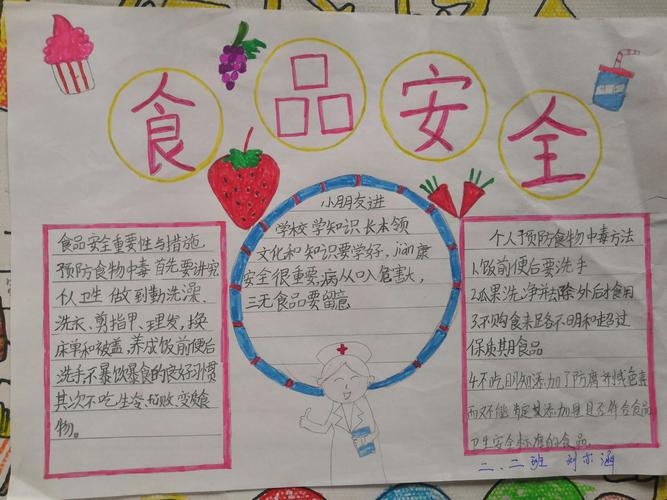 食品安全
食品安全重要性与措施
预防食物中毒首先要讲究
个人卫生做到勤洗澡、
洗衣、剪指甲、理发,换
床单和被盖,养成饭前便后
洗手不暴饮暴食的良好习惯
其次不吃生冷、腐败、变质食
物。
小朋友进
学校学知识长本领
文化和知识要学好,jian康
安全很重要,病从口入危害大,
三无食品要留意
个人预防食物中毒方法
1.饭前便后要洗手
2.瓜果洗净去除外后才食用
3.不购食来路不明和超过
保质期食品
4.不吃明知添加了防腐剂
而又不能 其添加 是否符合食品
卫生安全标准的食品
二、二班 刘亦涵